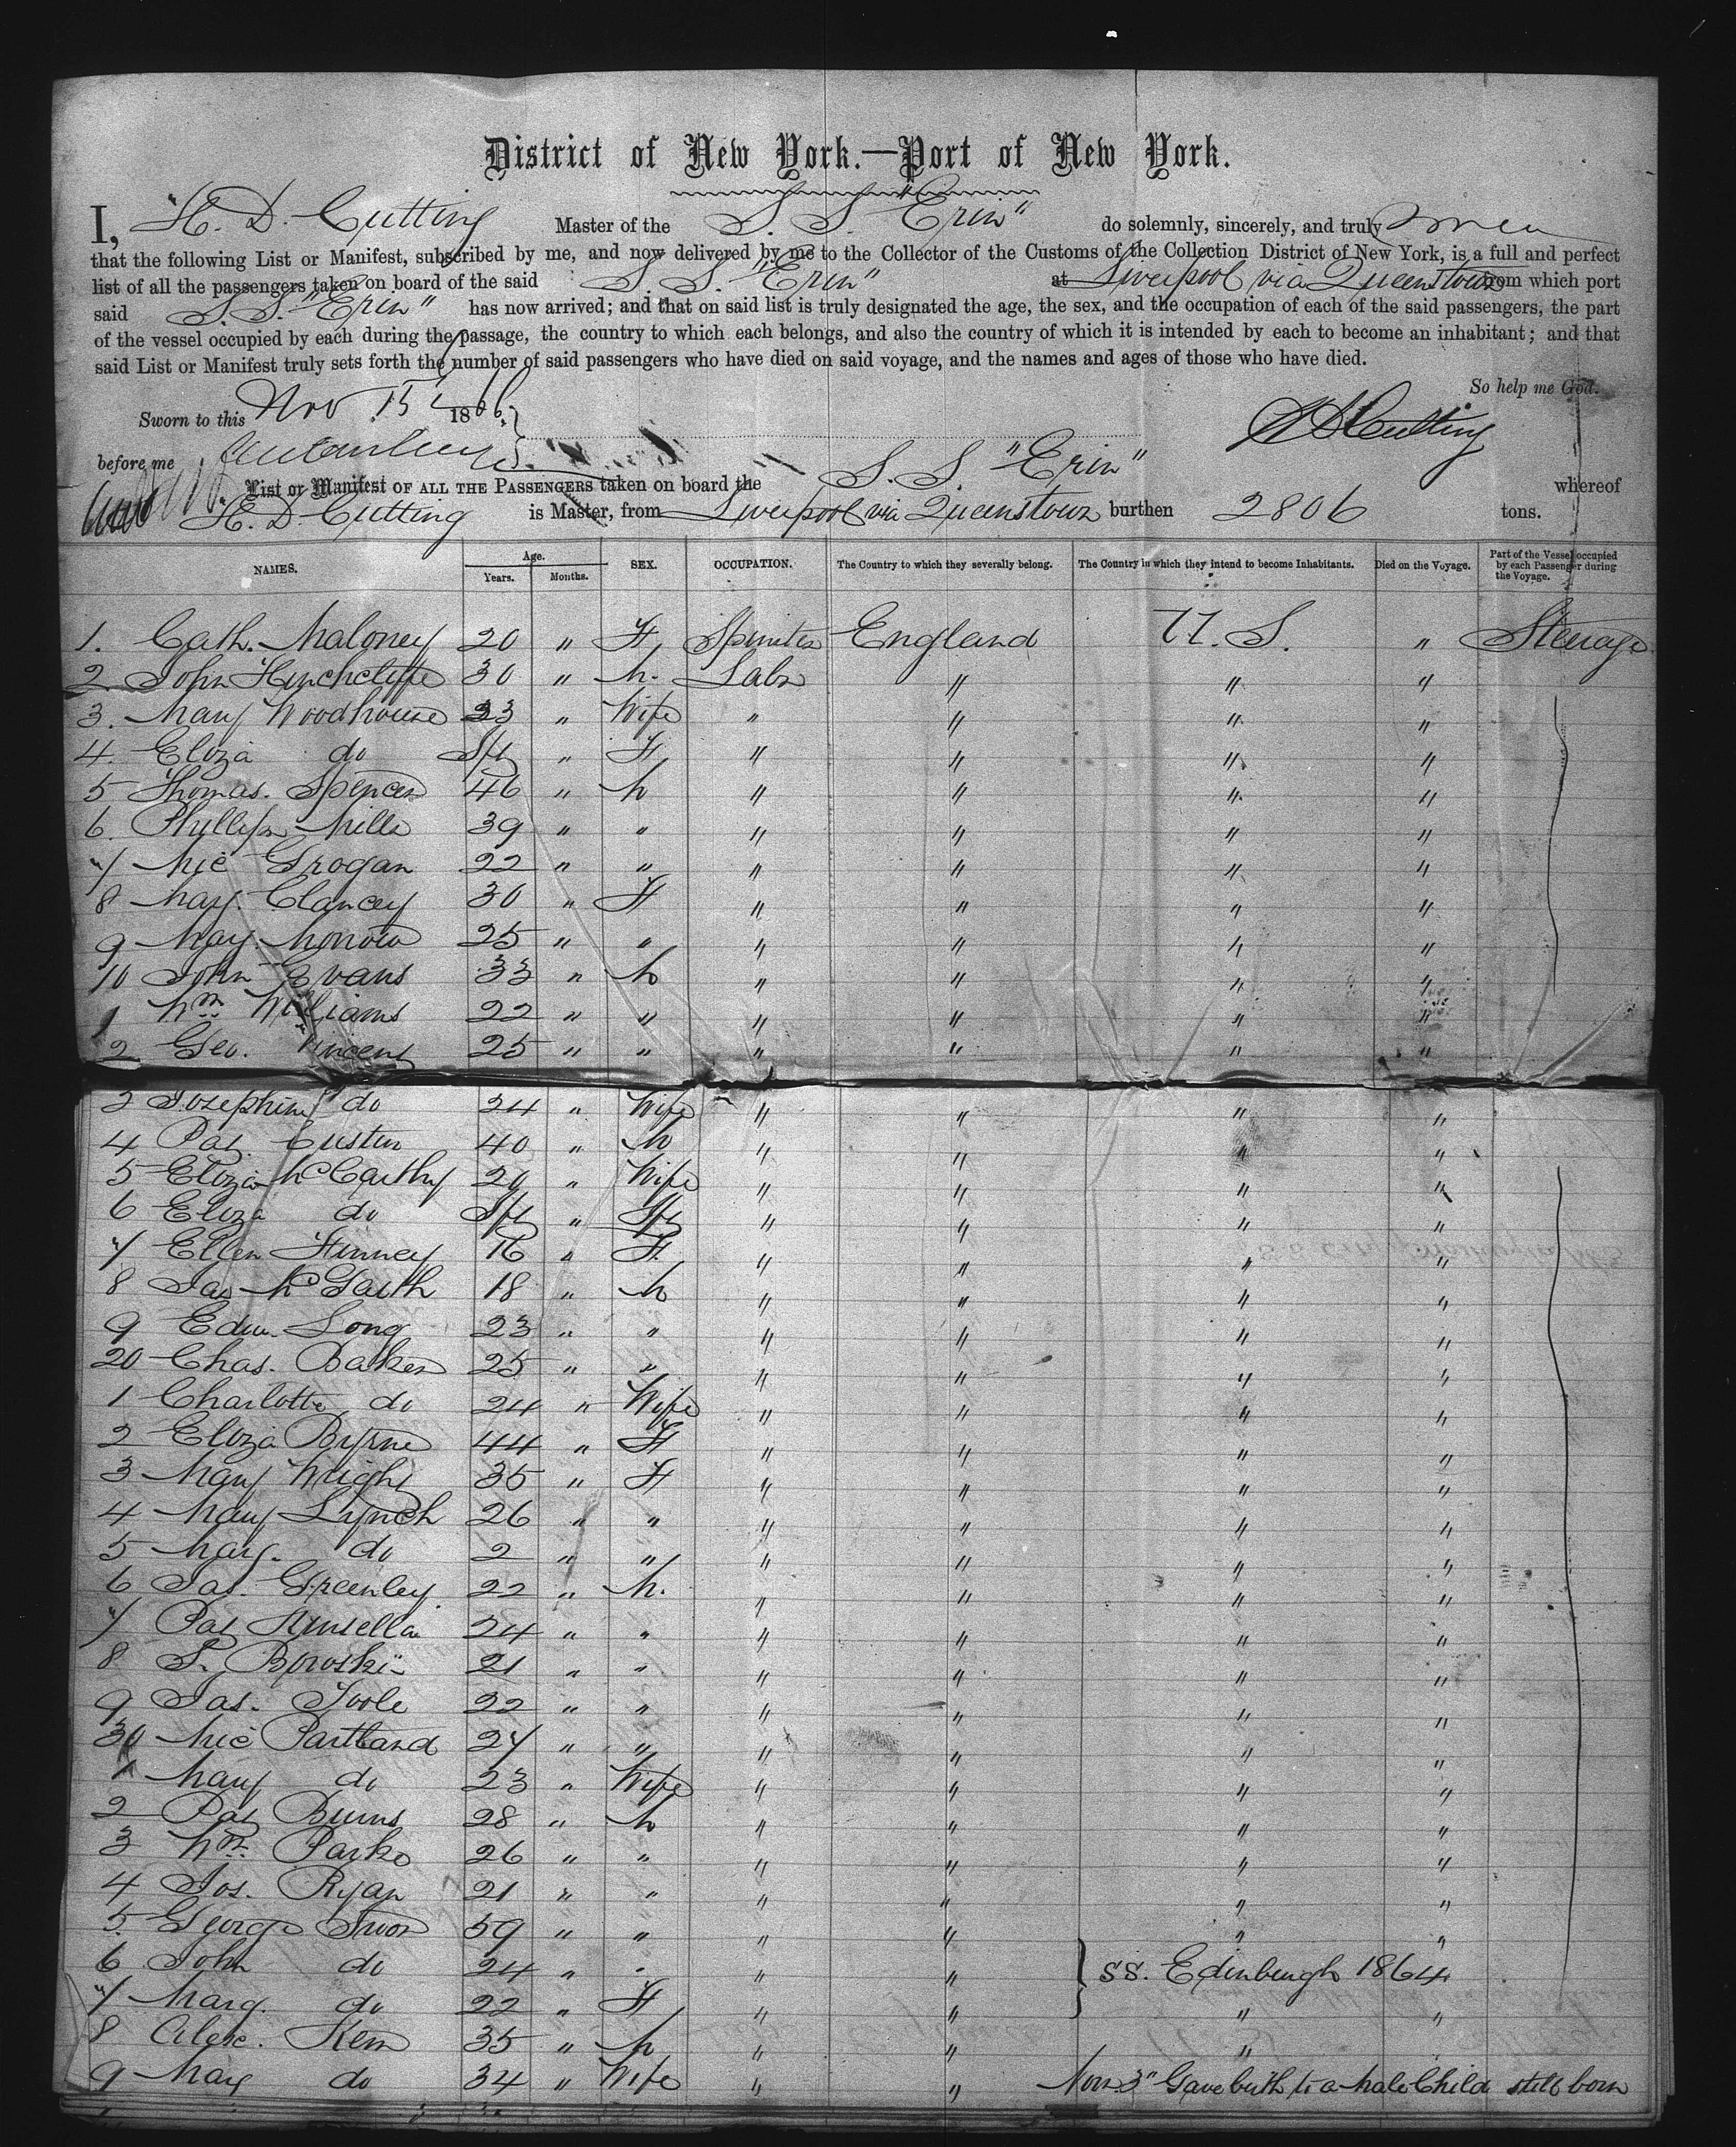 District of New York.—Port of New York.
I, H. D. Cutting Master of the S. S. "Erin" do solemnly, sincerely, and truly
that the following List or Manifest, subscribed by me, and now delivered by me to the Collector of the Customs of the Collection District of New York, is a full and perfect
list of all the passengers taken on board of the said S. S. "Erin" at Liverpool via Queenstown from which port
said S. S. "Erin" has now arrived; and that on said list is truly designated the age, the sex, and the occupation of each of the said passengers, the part
of the vessel occupied by each during the passage, the country to which each belongs, and also the country of which it is intended by each to become an inhabitant; and that
said List or Manifest truly sets forth the number of said passengers who have died on said voyage, and the names and ages of those who have died.
So help me God.
Sworn to this Nov 15 1866
H D Cutting
before me
List or Manifest OF ALL THE PASSENGERS taken on board the S. S. "Erin" whereof
H. D. Cutting is Master, from Liverpool via Queenstown burthen 2806 tons.
NAMES. Age. Years. Months. SEX. OCCUPATION. The Country to which they severally belong. The Country in which they intend to become Inhabitants. Died on the Voyage. Part of the Vessel occupied by each Passenger during the Voyage.
1. Cath. Maloney 20 " F Spinster England U. S. " Steerage
2. John Hinchcliffe 30 " M. Labr " " "
3. Mary Woodhouse 23 " Wife " " " "
4. Eliza do Inft " F " " " "
5 Thomas. Spencer 46 " M " " " "
6. Phillip Mills 39 " " " " " "
7 Mic Grogan 22 " " " " " "
8 Mary. Clancey 30 " F " " " "
9 May. 25 " " " " " "
10 John Evans 33 " M " " " "
1 Wm Williams 22 " " " " " "
2 Geo. Vincent 25 " " " " " "
3 Josephine do 24 " Wife " " " "
4 Pat. Custin 40 " M " " " "
5 Eliza McCarthy 20 " Wife " " " "
6 Eliza do Inft " Inft " " " "
7 Ellen Finney 16 " F. " " " "
8 Jas 18 " M " " " "
9 Edw. Long 23 " " " " " "
20 Chas. Baker 25 " " " " " "
1 Charlotte do 24 " Wife " " " "
2 Eliza Byrne 44 " F " " " "
3 Mary Wright 35 " F " " " "
4 Mary Lynch 26 " " " " " "
5 Marg. do 2 " " " " " "
6 Jas. Greenley 22 " M. " " " "
7 Pat Kinsella 24 " " " " " "
8 S. Boroski 21 " " " " " "
9 Jas. Toole 22 " " " " " "
30 Mic Partland 27 " " " " " "
1 Mary do 23 " Wife " " " "
2 Pat Burns 28 " M " " " "
3 Wm. Parks 26 " " " " " "
4 Jos. Ryan 21 " " " " " "
5. George 59 " " " " " "
6 John do 24 " " " " SS. Edinburgh 1864
7 Marg. do 22 " F " " " "
8 Alex. Kerr 35 " M " " " "
9 May do 34 " Wife " " Nov. 3" Gave birth to a male Child still born